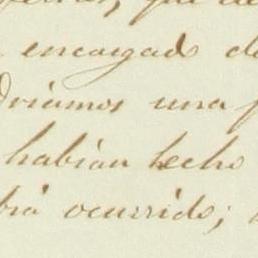 que de
encargado de
driamos una
habian hecho
brá ocurrido;